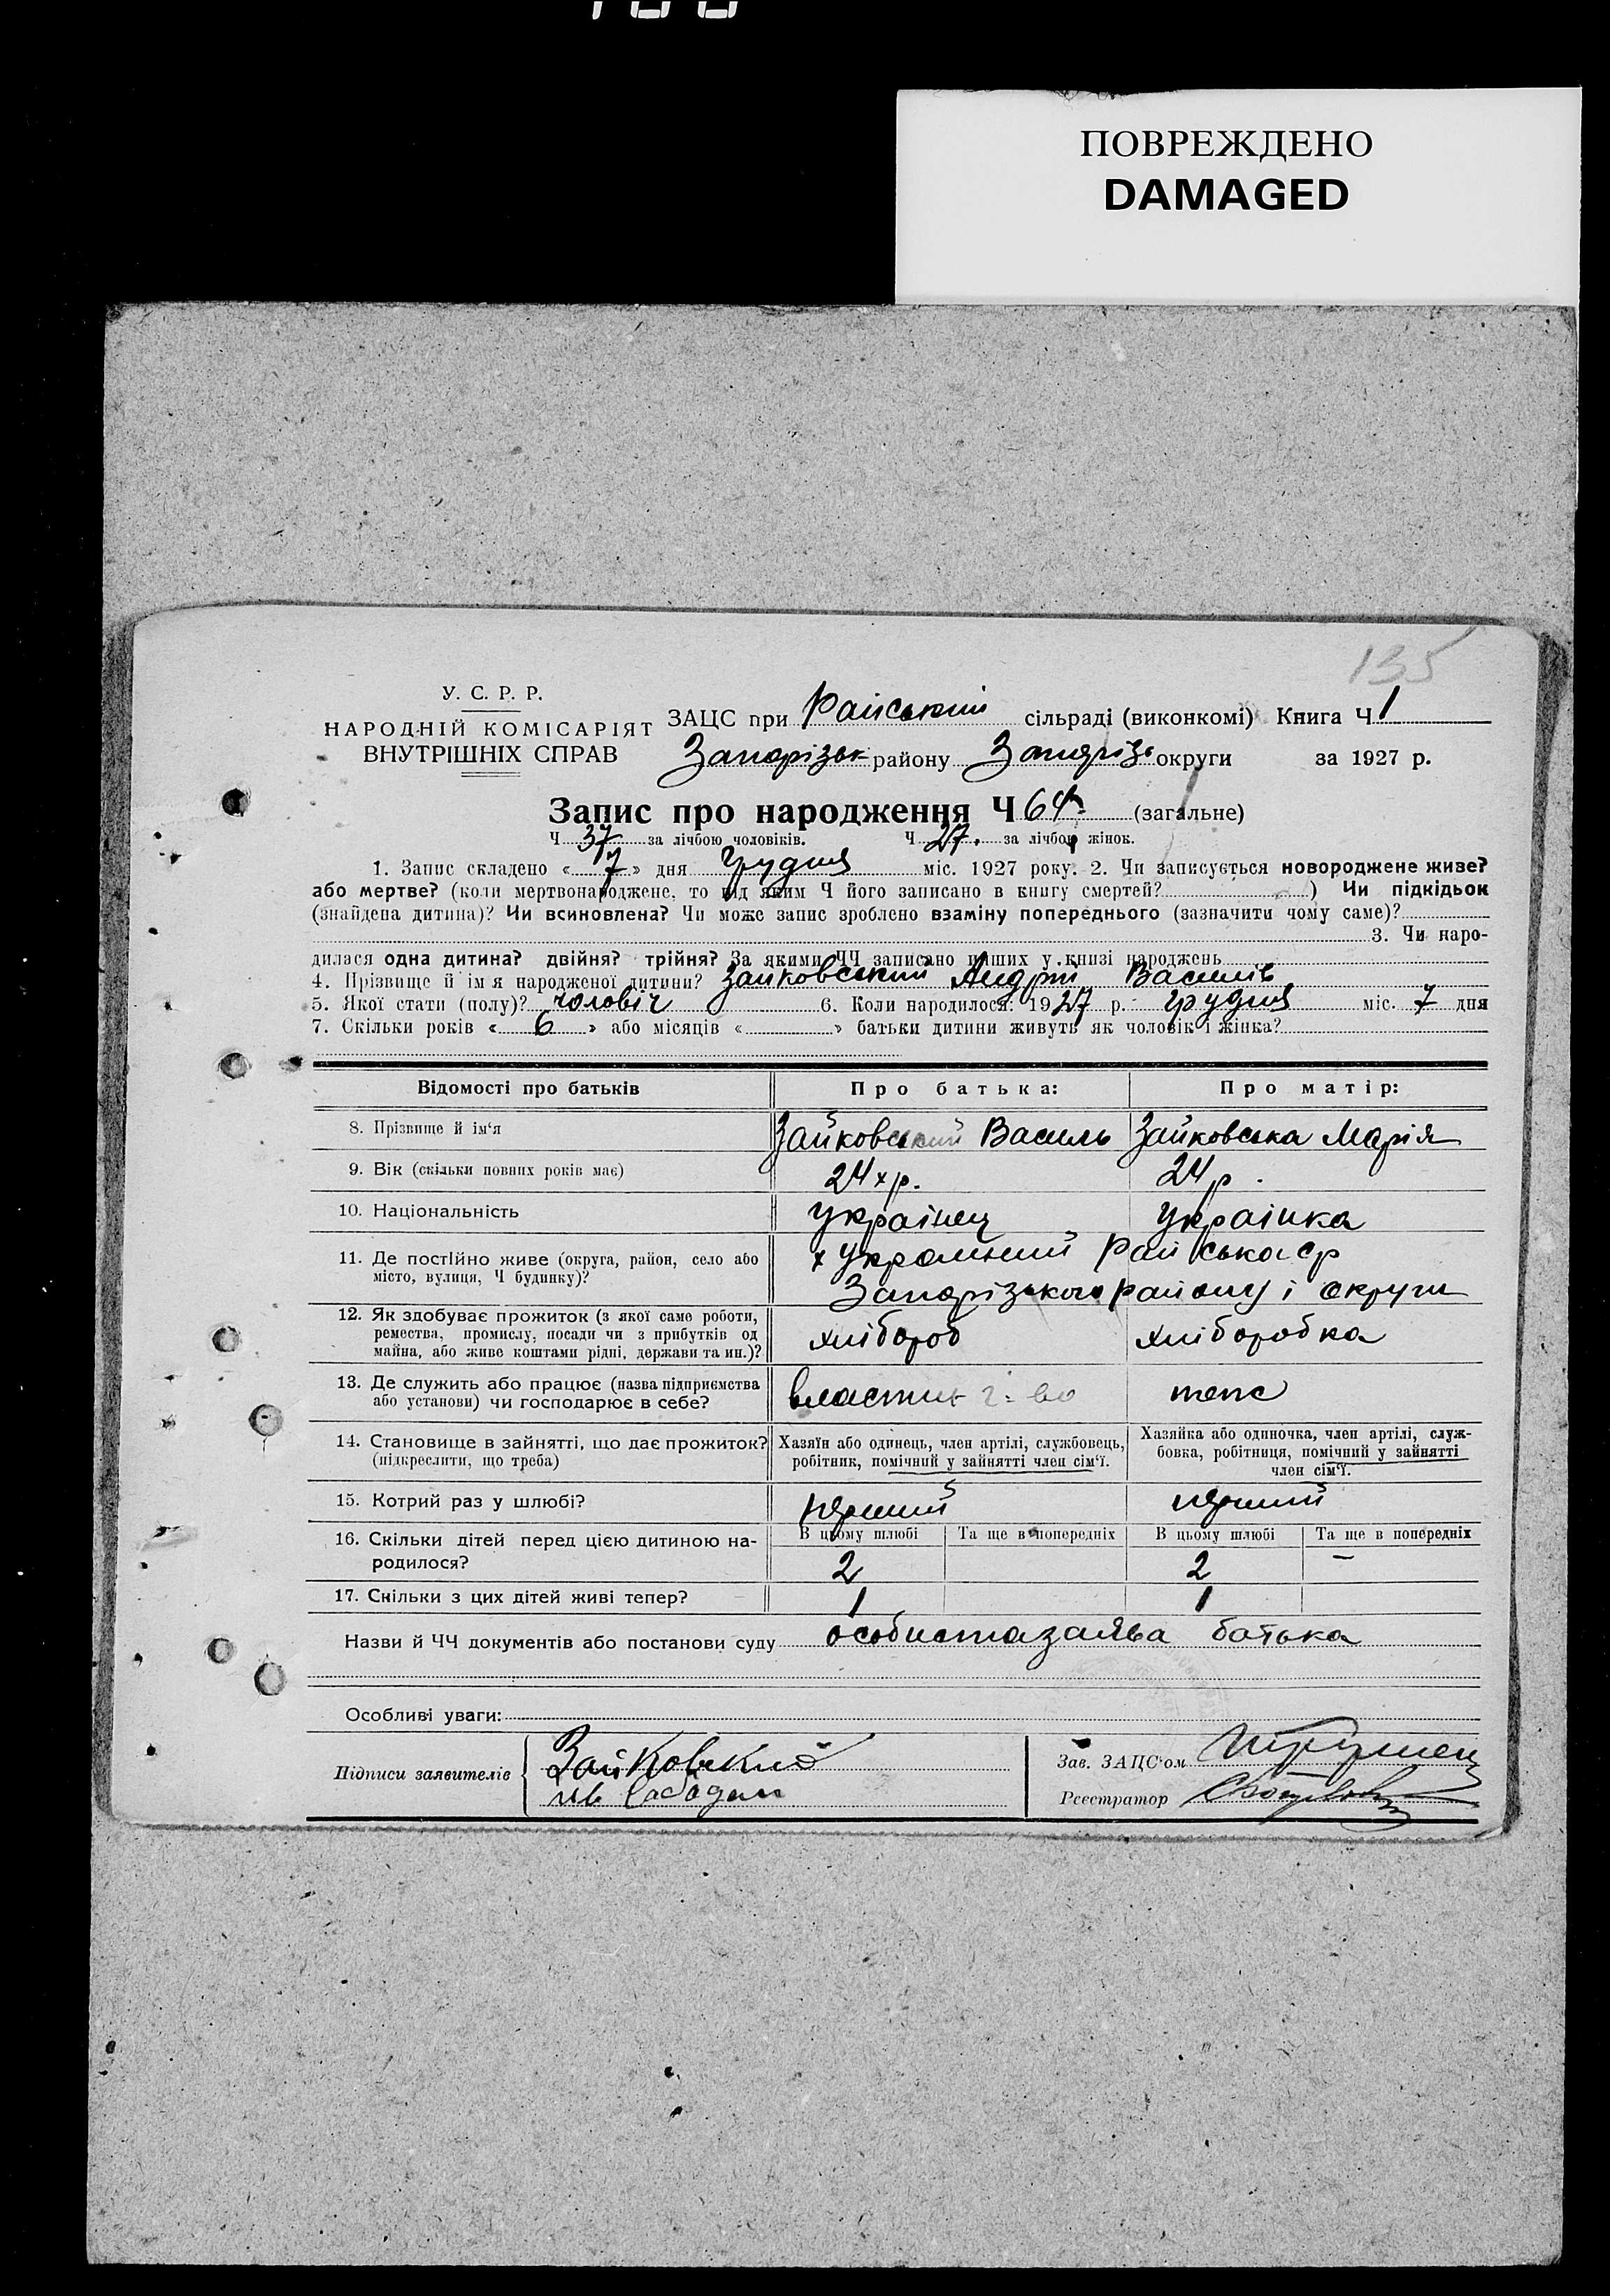 ПОВРЕЖДЕНО
DAMAGED
135
У. С. Р. Р.
НАРОДНІЙ КОМІСАРІЯТ
ВНУТРІШНІХ СПРАВ
ЗАЦС при Райській сільраді (виконкомі) Книга Ч 1
Запорізьк району Запорізь округи за 1927 р.
Запис про народження Ч 64 (загальне)
Ч 37 за лічбою чоловіків. Ч 27. за лічбою жінок.
1. Запис складено « 7 » дня грудня міс. 1927 року. 2. Чи записується новороджене живе?
або мертве? (коли мертвонароджене, то під яким Ч його записано в книгу смертей? ) Чи підкідьок
(знайдена дитина)? Чи всиновлена? Чи може запис зроблено взаміну попереднього (зазначити чому саме)?
3. Чи наро-
дилася одна дитина? двійня? трійня? За якими ЧЧ записано инших у книзі народжень
4. Прізвище й ім'я народженої дитини? Зайковський Андрій Василів
5. Якої стати (полу)? чоловіч 6. Коли народилося: 1927 р. грудня міс. 7 дня
7. Скільки років « 6 » або місяців « » батьки дитини живуть як чоловік і жінка?
Відомості про батьків Про батька: Про матір:
8. Прізвище й ім'я Зайковський Василь Зайковська Марія
9. Вік (скільки повних років має) 24 х р. 24 р.
10. Національність Українец Українка
11. Де постійно живе (округа, район, село або х Украиний Райська ср
місто, вулиця, Ч будинку)? Запорізького району і округи
12. Як здобуває прожиток (з якої саме роботи,
ремества, промислу, посади чи з прибутків од хлібороб хліборобка
майна, або живе коштами рідні, держави та ин.)?
13. Де служить або працює (назва підприємства
або установи) чи господарює в себе? власник г-во тепс
14. Становище в зайнятті, що дає прожиток? Хазяїн або одинець, член артілі, службовець, Хазяйка або одиночка, член артілі, служ-
(підкреслити, що треба) робітник, помічний у зайнятті член сім'ї. бовка, робітниця, помічний у зайнятті
член сім'ї.
15. Котрий раз у шлюбі? перший перший
16. Скільки дітей перед цією дитиною на- В цьому шлюбі Та ще в попередніх В цьому шлюбі Та ще в попередніх
родилося? 2 2 –
17. Скільки з цих дітей живі тепер? 1 1
Назви й ЧЧ документів або постанови суду особиста заява батька
Особливі уваги:
Підписи заявителів Зайковский
Зав. ЗАЦС'ом
Реєстратор